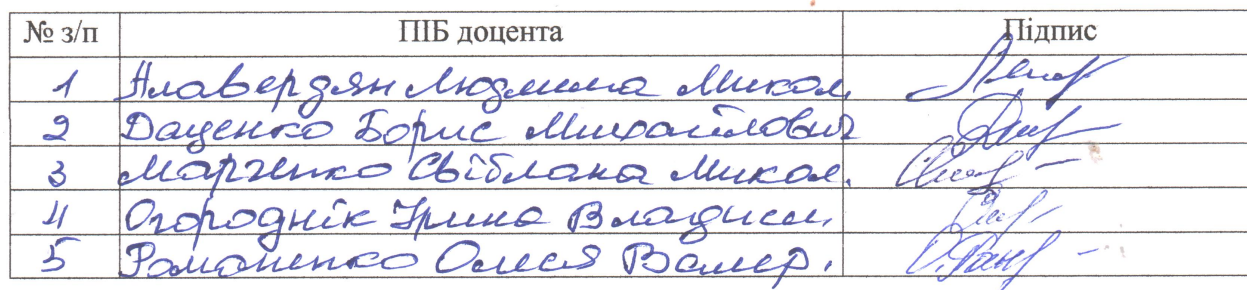 № з/п ПІБ доцента Підпис
1 Алавердян Людмила Микол.
2 Даценко Борис Михайлович
3 Марченко Світлана Микол.
4 Огороднік Ірина Владисл.
5 Романенко Олеся Валер.